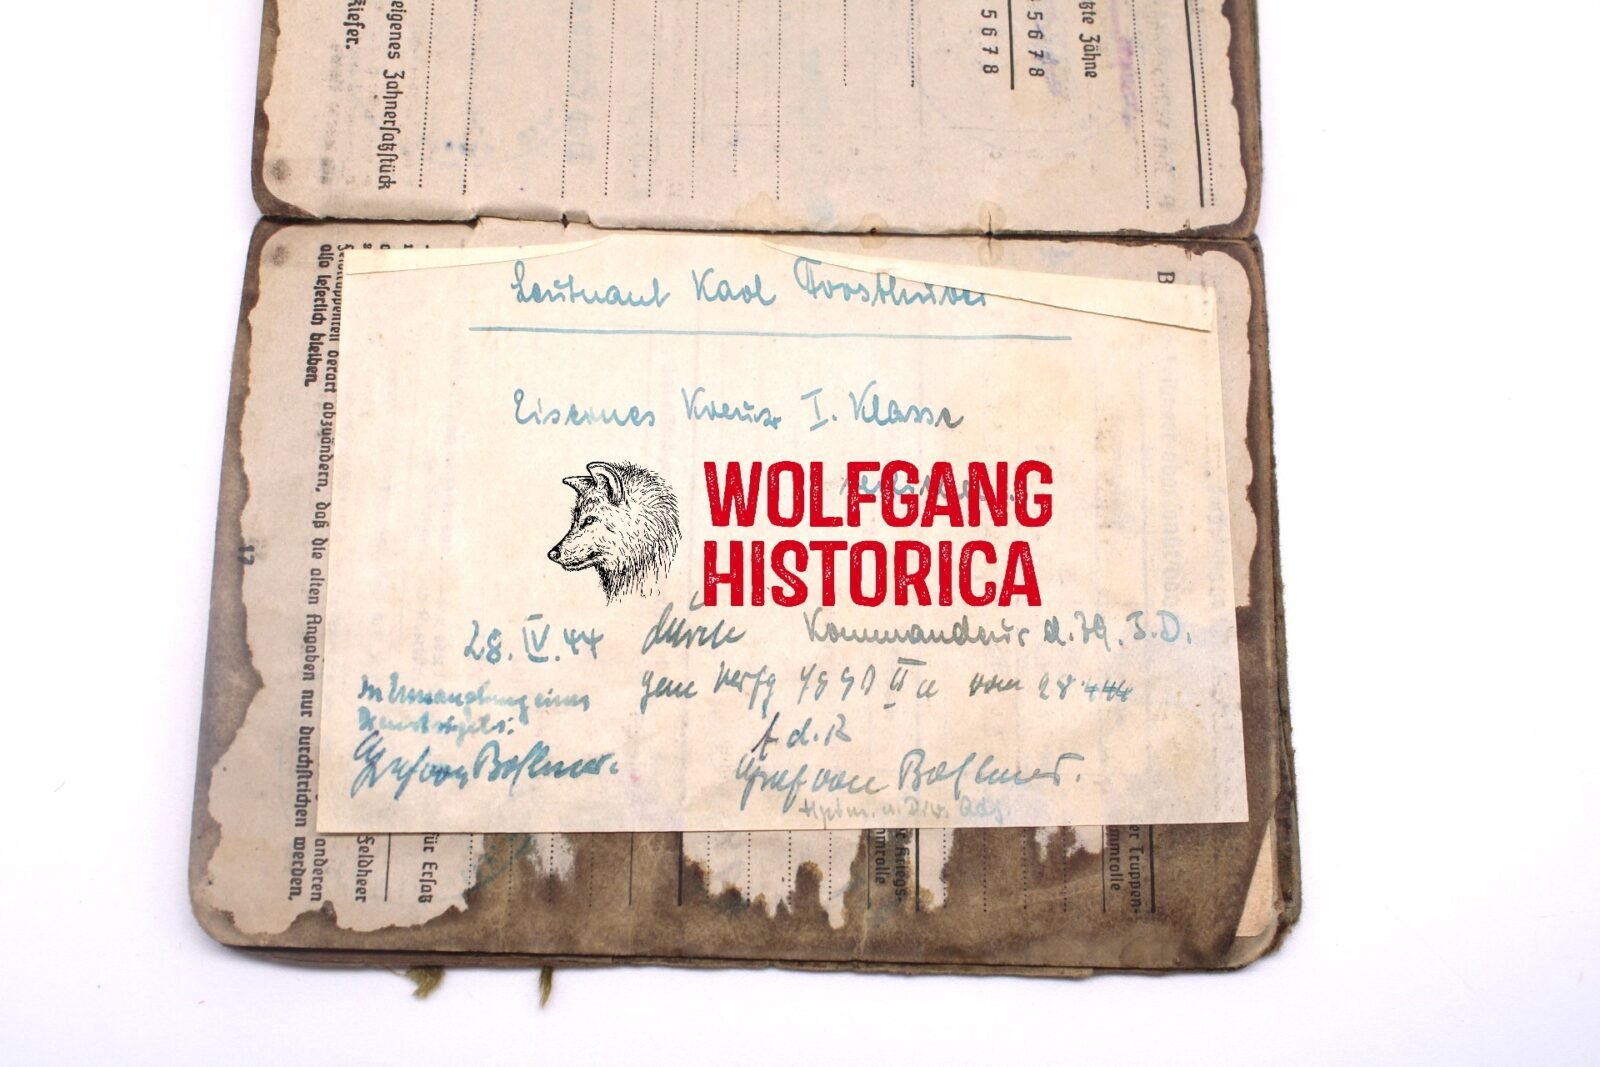 eigenes Zahnersatzstück
Kiefer.
zte Zähne
5 6 7 8
5 6 7 8
Leutnant Karl Forsthuber
Eisernes Kreuz I. Klasse
WOLFGANG
HISTORICA
28. IV. 44 durch Kommandeur d. 79. I.D.
gem Verfg IIa vom 28 4 44
In Ermanglung eines
Dienstsiegels:
f. d. R
Graf von Bothmer.
Graf von Bothmer.
Hptm. u. Div. Adj.
17
derart abzuändern, daß die alten Angaben nur durchstrichen werden,
also leserlich bleiben.
anderen
Feldheer
für Ersatz
Kriegs-
mmrolle
er Truppen-
mmrolle
B